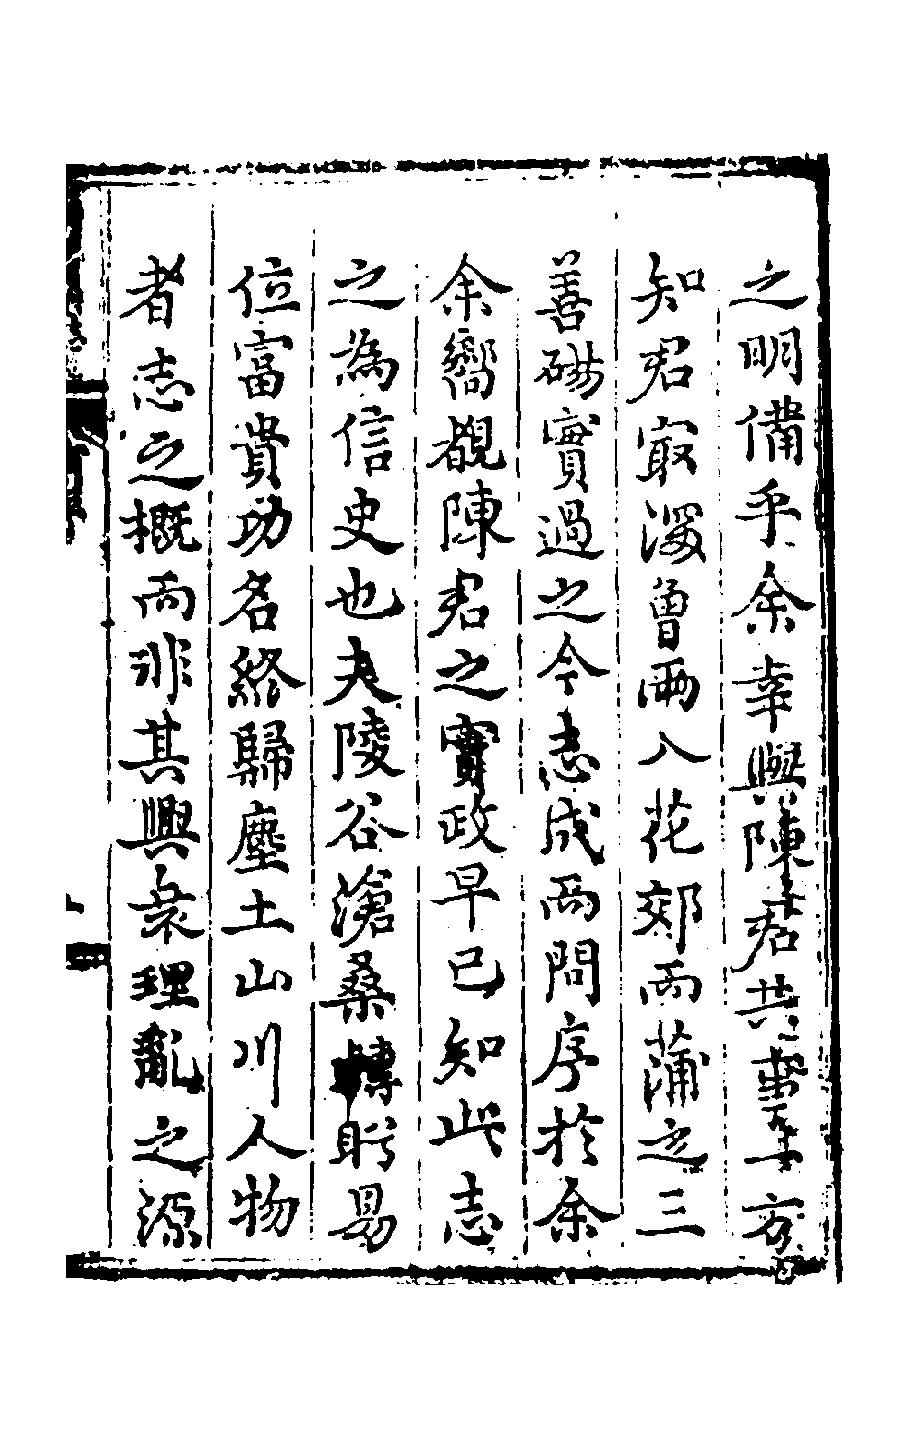 之明備乎余幸與陳君共事方
知君最深曾兩入花郊而蒲之三
善確實過之今志成而問序於余
余嚮覩陳君之實政早已知此志
之為信史也夫陵谷滄桑轉盻易
位富貴功名終歸塵土山川人物
者志之概而非其興衰理亂之源